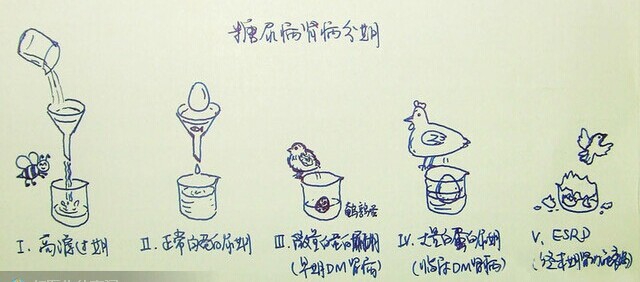 糖尿病肾病分期
I. 高滤过期
II. 正常白蛋白尿期
鹌鹑蛋
III. 微量白蛋白尿期
(早期DM肾病)
IV. 大量白蛋白尿期
(临床DM肾病)
V. ESRD